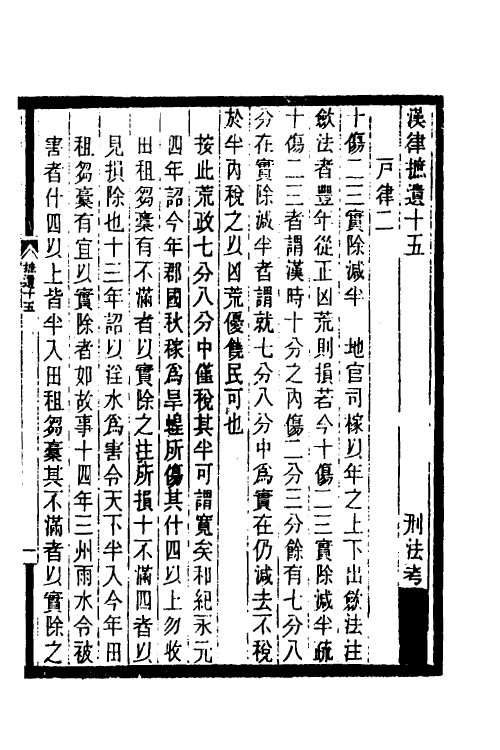 漢律摭遺十五　刑法考
戸律二
十傷二三實除減半　地官司稼以年之上下出斂法注
斂法者豐年從正凶荒則損若今十傷二三實除減半疏
十傷二三者謂漢時十分之內傷二分三分餘有七分八
分在實除減半者謂就七分八分中為實在仍減去不稅
於半內稅之以凶荒優饒民可也
按此荒政七分八分中僅稅其半可謂寬矣和紀永元
四年詔今年郡國秋稼為旱蝗所傷其什四以上勿收
田租芻稾有不滿者以實除之注所損十不滿四者以
見損除也十三年詔以淫水為害令天下半入今年田
租芻稾有宜以實除者如故事十四年三州雨水令被
害者什四以上皆半入田租芻稾其不滿者以實除之
摭遺十五
一